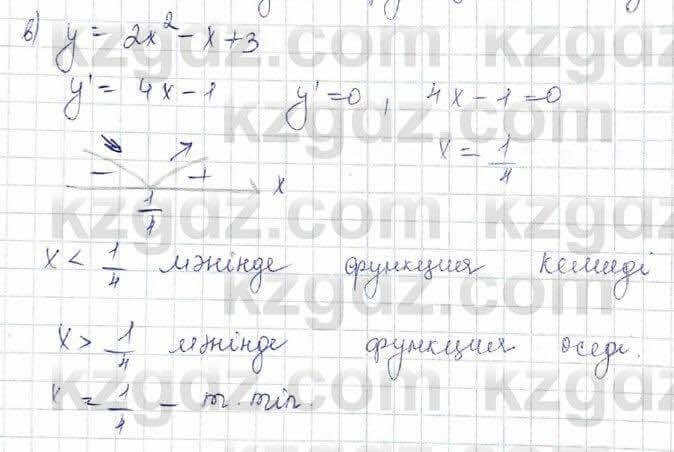 в) y = 2x² - x + 3
y' = 4x - 1 y' = 0, 4x - 1 = 0
x = 1/4
- + x
1/4
x < 1/4 мәнінде функция кемиді
x > 1/4 мәнінде функция өседі.
x = 1/4 - т. min.
kzgdz.com
kzgdz.com
kzgdz.com
kzgdz.com
kzgdz.com